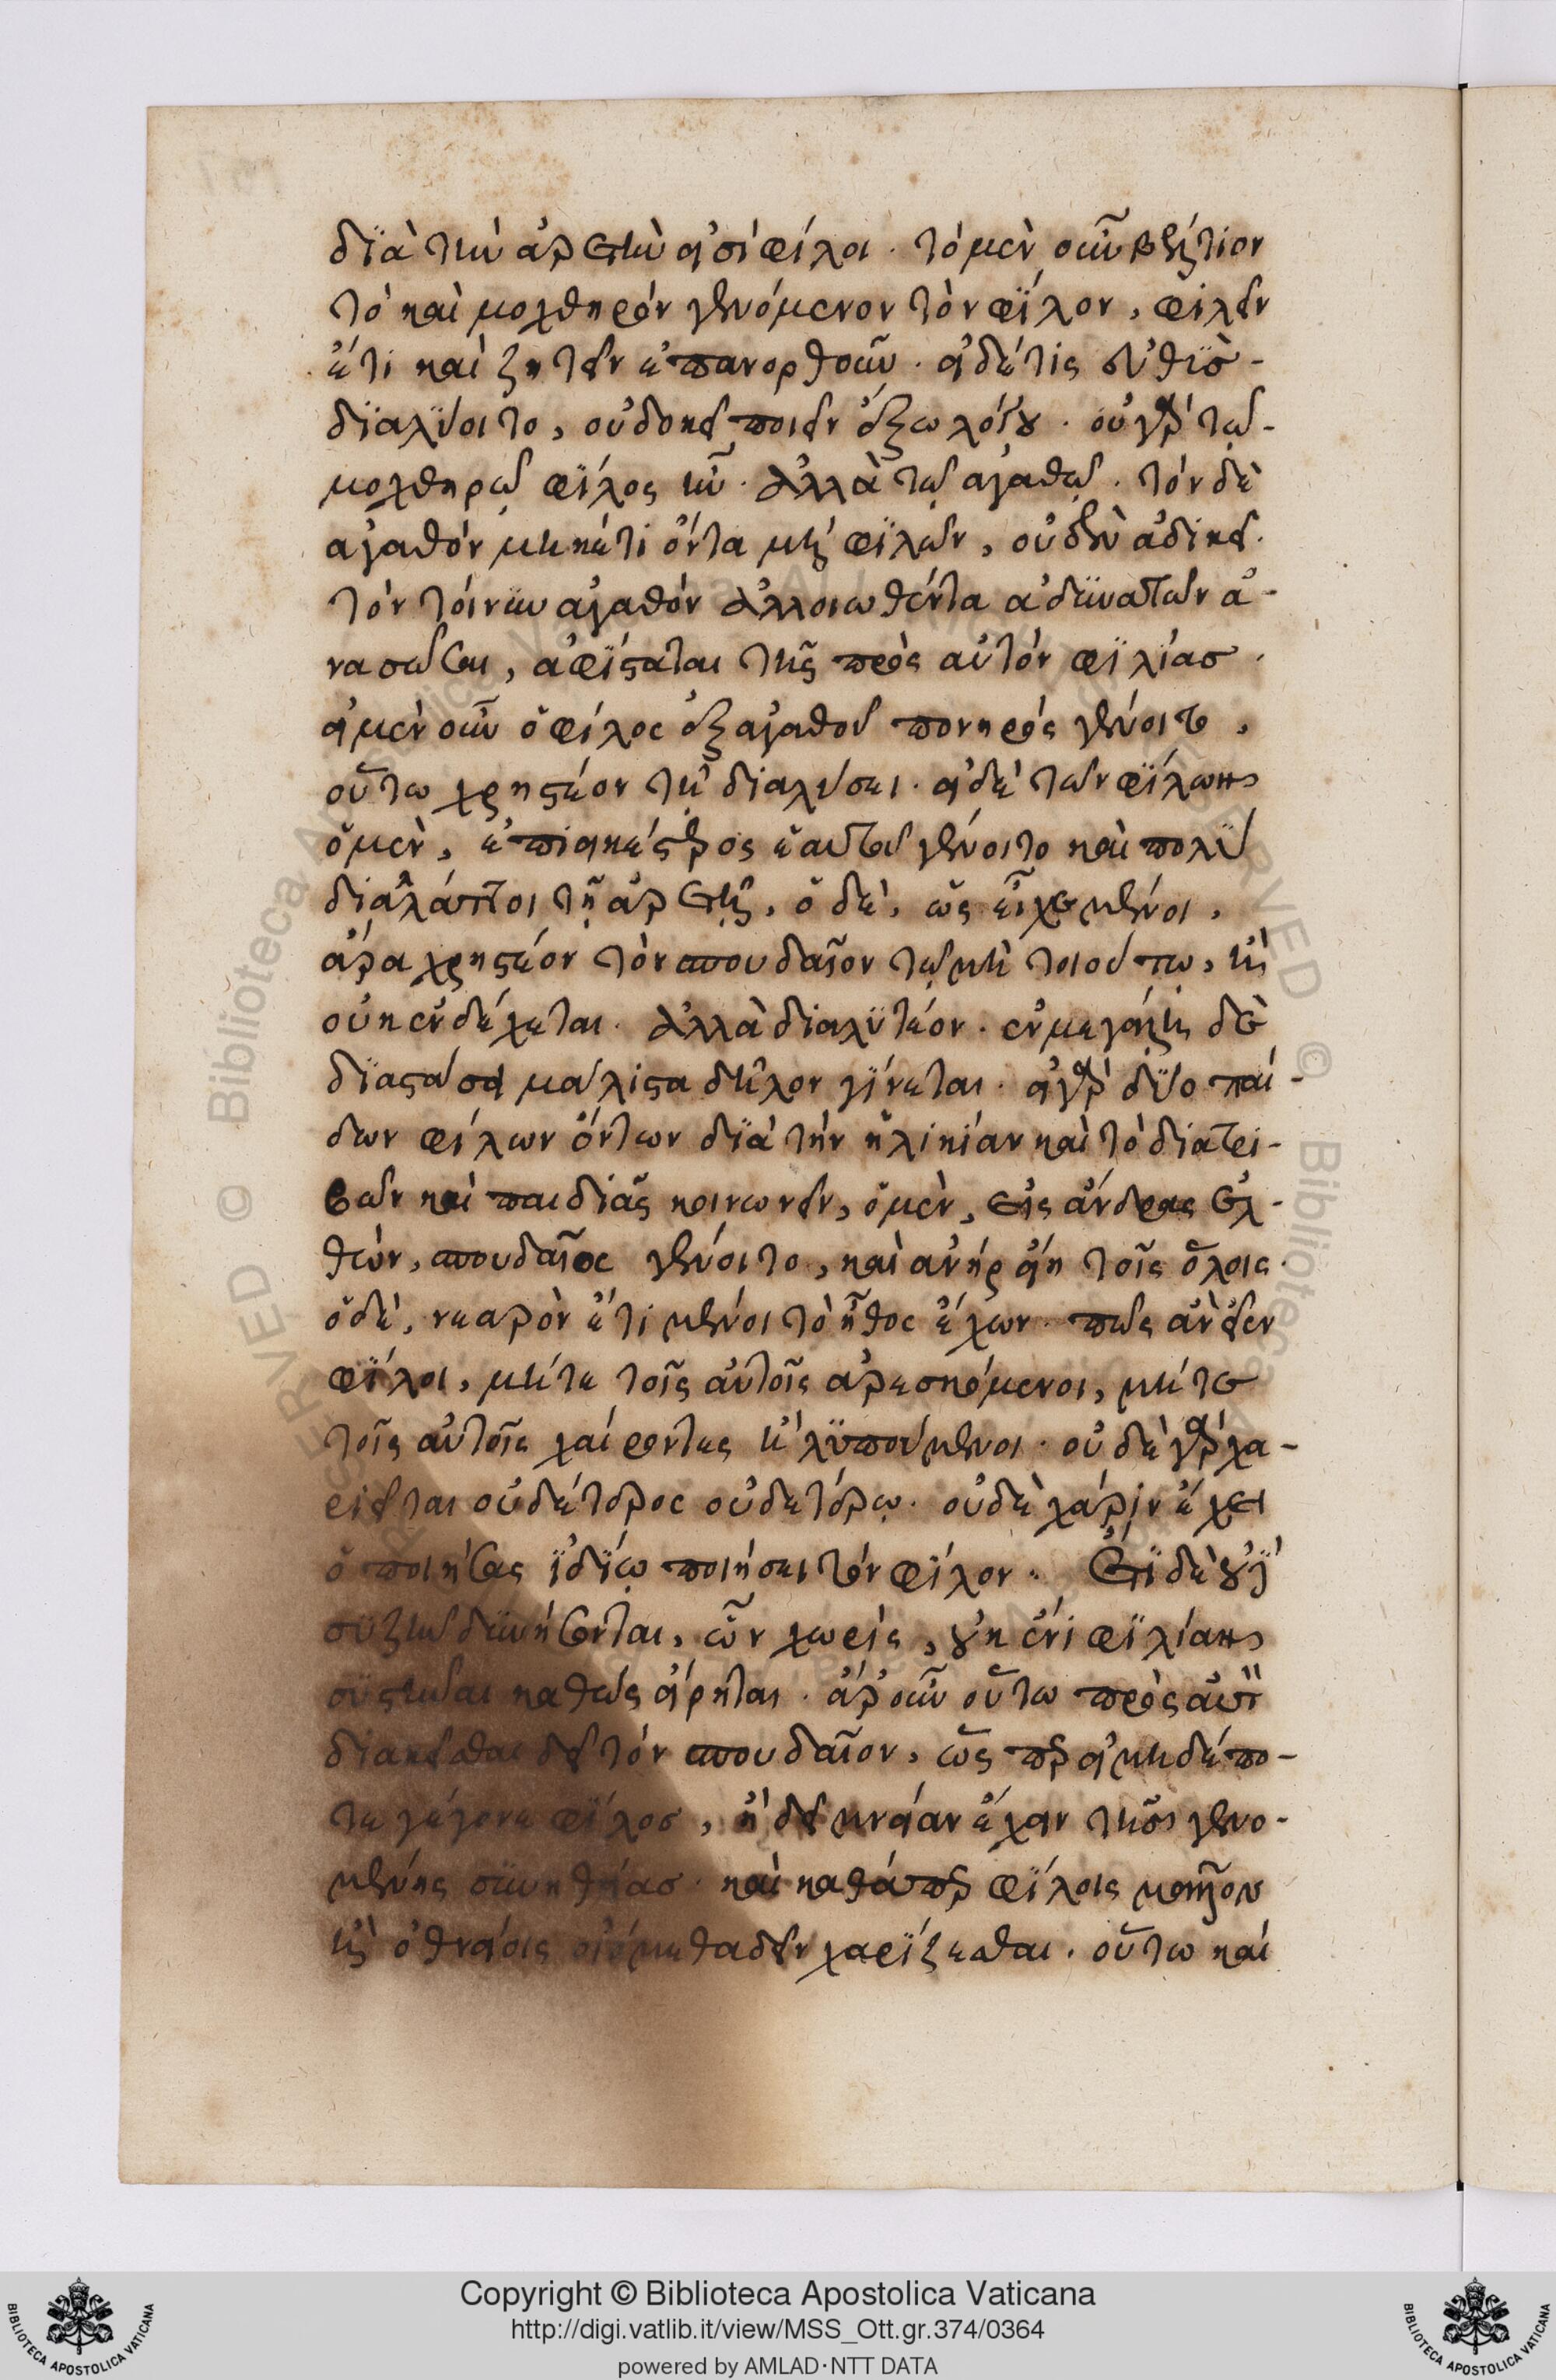 διὰ τὴν ἀρετὴν εἰσὶ φίλοι· τὸ μὲν οὖν βέλτιον
τὸ καὶ μοχθηρὸν γενόμενον τὸν φίλον, φιλεῖν
ἔτι καὶ ζητεῖν ἐπανορθοῦν· εἰ δέ τις εὐθὺς
διαλύοιτο, οὐ δοκεῖ ποιεῖν ἔξω λόγου· οὐ γὰρ τῷ
μοχθηρῷ φίλος ἦν· ἀλλὰ τῷ ἀγαθῷ· τὸν δὲ
ἀγαθὸν μηκέτι ὄντα μὴ φιλῶν, οὐδὲν ἀδικεῖ·
τὸν τοίνυν ἀγαθὸν ἀλλοιωθέντα ἀδυνατῶν ἀ-
νασῶσαι, ἀφίσταται τῆς πρὸς αὐτὸν φιλίας·
εἰ μὲν οὖν ὁ φίλος ἐξ ἀγαθοῦ πονηρὸς γένοιτο,
οὕτω χρηστέον τῇ διαλύσει· εἰ δὲ τῶν φίλων
ὁ μὲν, ἐπιεικέστερος ἑαυτοῦ γένοιτο καὶ πολὺ
διαλλάττοι τῇ ἀρετῇ, ὁ δὲ, ὡς εἶχε μένοι,
ἆρα χρηστέον τὸν σπουδαῖον τῷ μὴ τοιούτῳ, ἢ
οὐκ ἐνδέχεται· ἀλλὰ διαλυτέον· ἐν μεγάλῃ δὲ
διαστάσει μάλιστα δῆλον γίνεται· εἰ γὰρ δύο παί-
δων φίλων ὄντων διὰ τὴν ἡλικίαν καὶ τὸ διατρι-
βῶν καὶ παιδιᾶς κοινωνεῖν, ὁ μὲν, εἰς ἄνδρας ἐλ-
θὼν, σπουδαῖος γένοιτο, καὶ ἀνὴρ εἴη τοῖς ὅλοις·
ὁ δὲ, νεαρὸν ἔτι μένοι τὸ ἦθος ἔχων· πῶς ἂν εἶεν
φίλοι, μήτε τοῖς αὐτοῖς ἀρεσκόμενοι, μήτε
τοῖς αὐτοῖς χαίροντες ἢ λυπούμενοι· οὐδὲ γὰρ χα-
ριεῖται οὐδέτερος οὐδετέρῳ· οὐδὲ χάριν ἔχει
ὁ ποιήσας ἰδίῳ ποιήσει τὸν φίλον· Ἔτι δὲ οὐ
συζῆν δυνήσονται, ὧν χωρὶς, οὐκ ἔνι φιλίαν
συστῆναι καθὼς εἴρηται· ἆρ' οὖν οὕτω πρὸς αὐτὸν
διακεῖσθαι δεῖ τὸν σπουδαῖον, ὥσπερ εἰ μηδέπο-
τε γέγονε φίλος, ἢ δεῖ μνείαν ἔχειν τῆς γενο-
μένης συνηθείας· καὶ καθάπερ φίλοις μᾶλλον
ἢ ὀθνείοις οἰόμεθα δεῖν χαρίζεσθαι· οὕτω καὶ
Copyright © Biblioteca Apostolica Vaticana
http://digi.vatlib.it/view/MSS_Ott.gr.374/0364
powered by AMLAD·NTT DATA